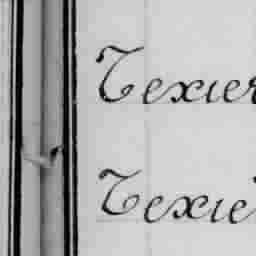 Texier
Texie